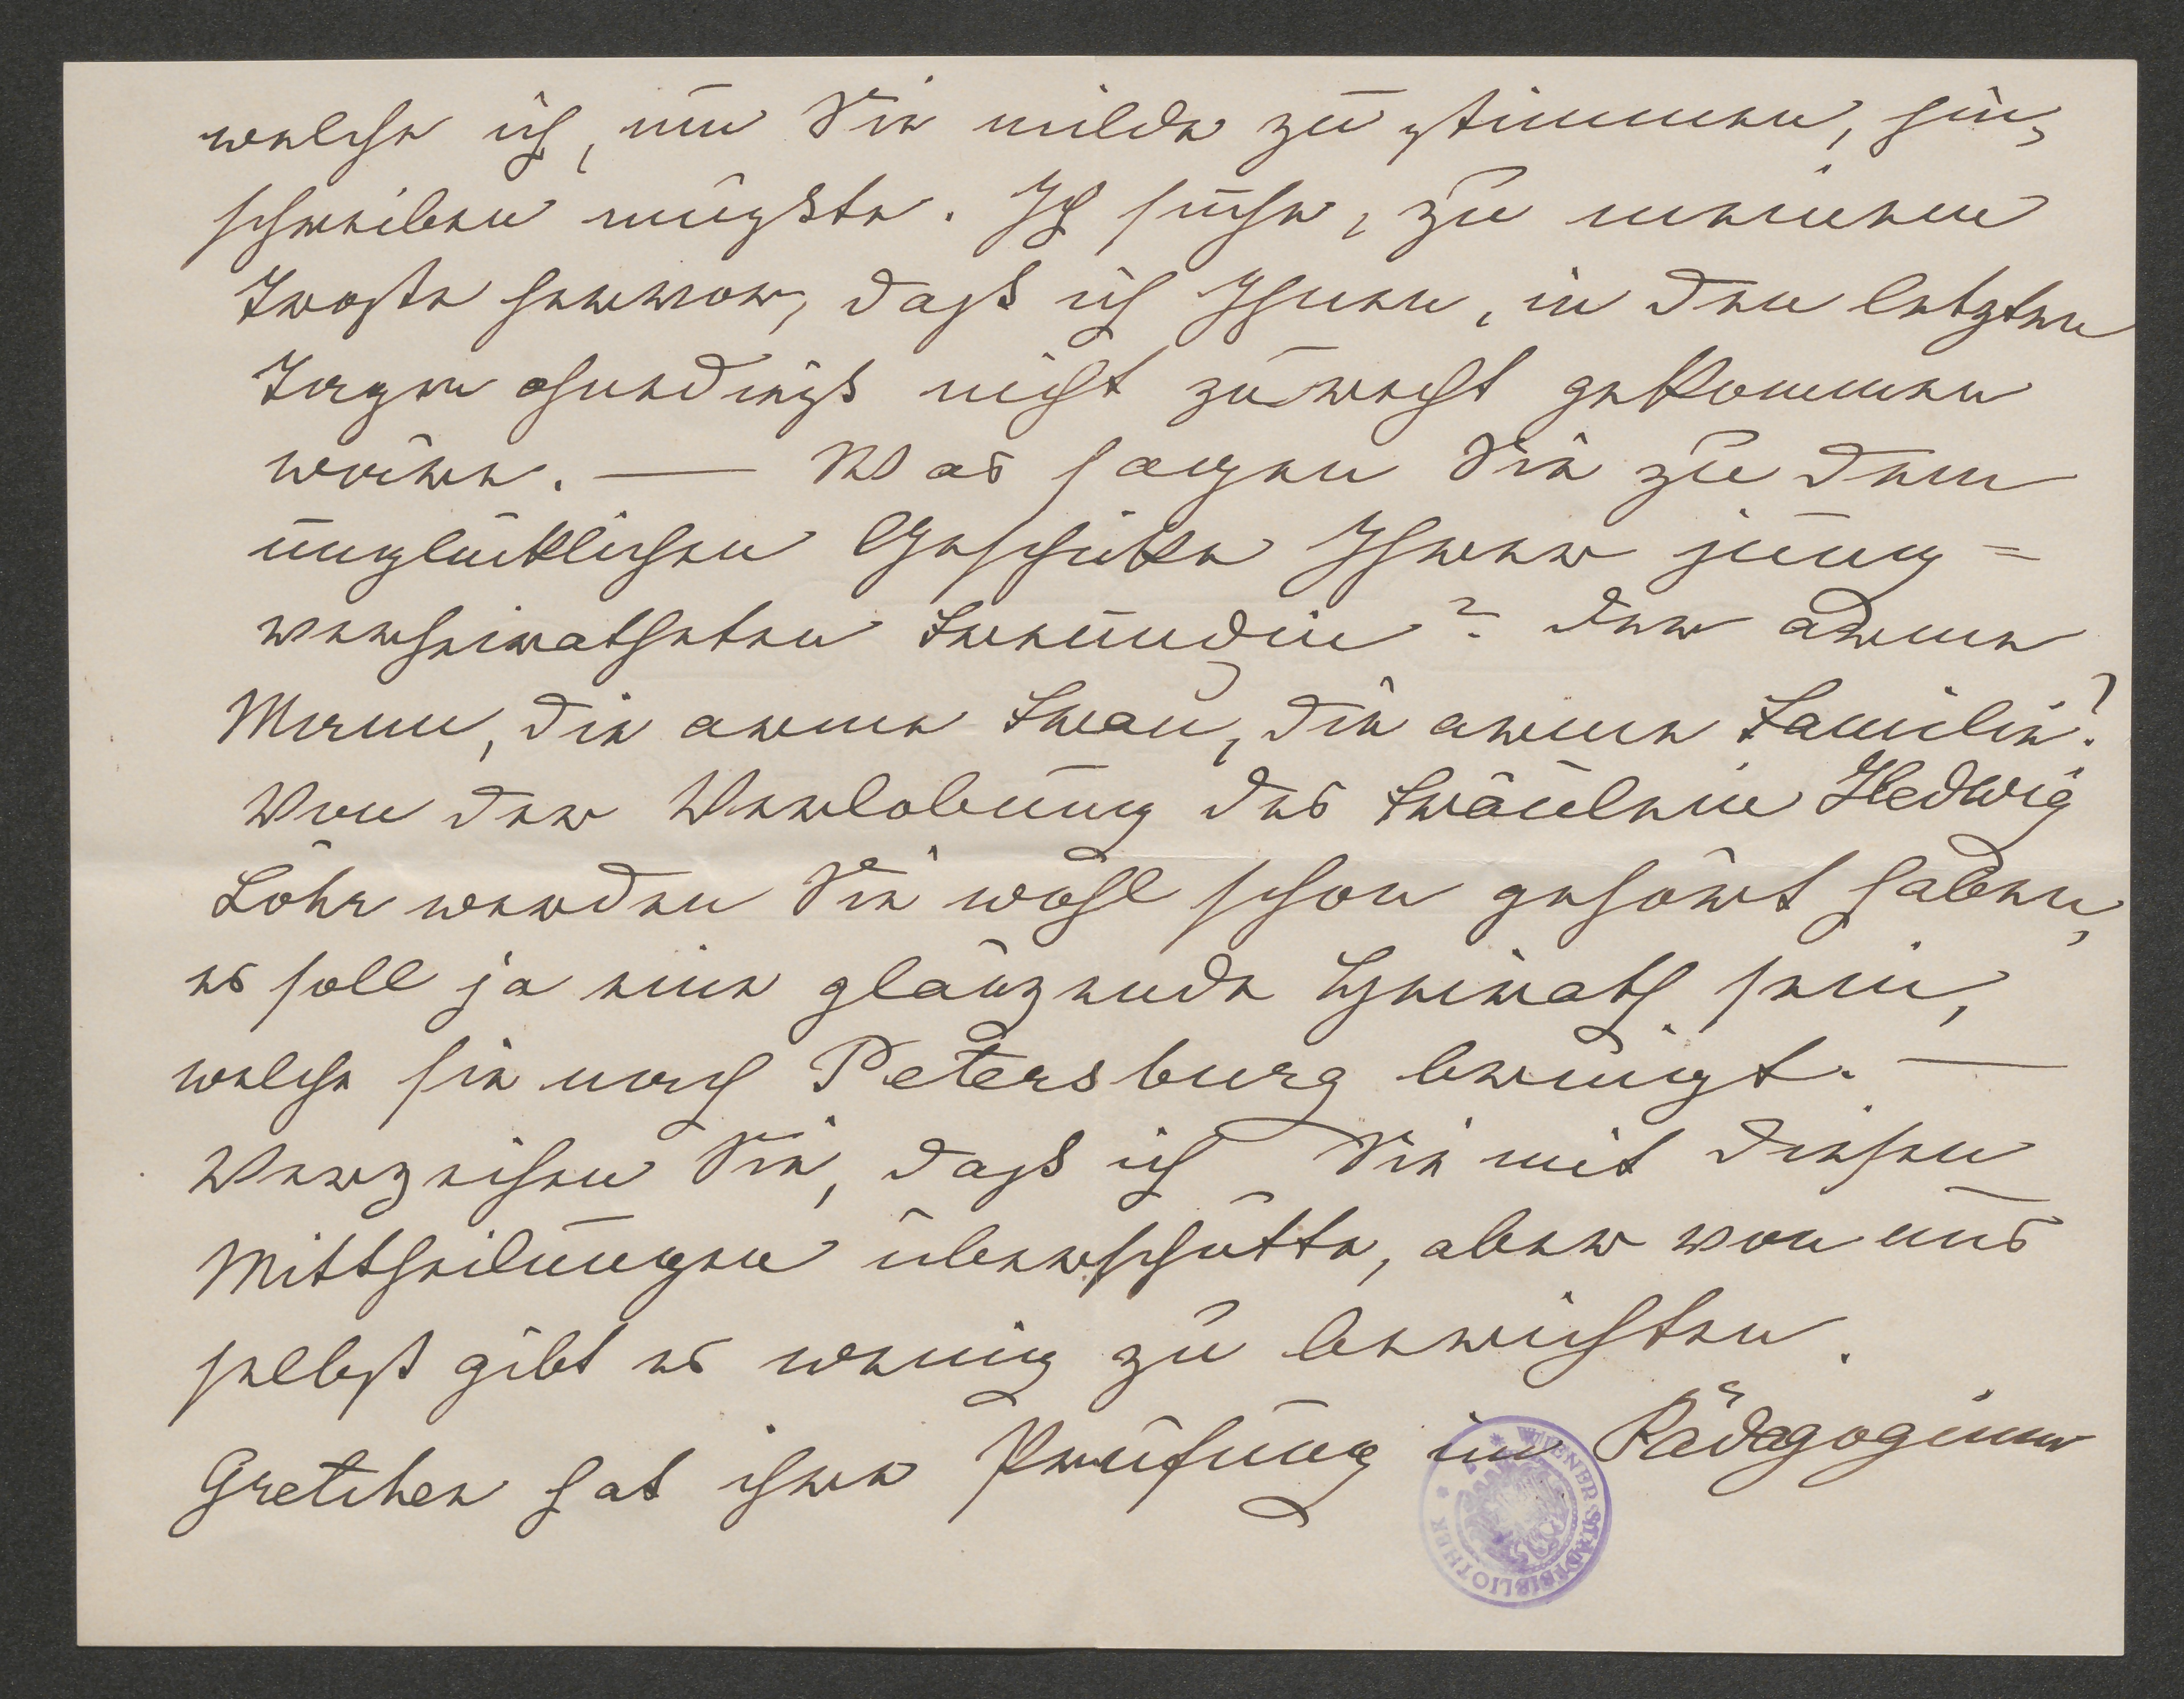 welche ich, um Sie milde zu stimmen, hin-
schreiben müsste. Ich suche, zu meinem
Troste hervor, dass ich Ihnen, in den letzten
Tagen ohnedieß nicht zurecht gekommen
wäre. — Was sagen Sie zu dem
unglücklichen Geschicke Ihrer jung=
verheiratheten Freundin? Der arme
Mann, die arme Frau, die arme Familie!
Von der Verlobung des Fräulein Hedwig
Löhr werden Sie wohl schon gehört haben,
es soll ja eine glänzende Heirath sein,
welche sie nach Petersburg bringt. —
Verzeihen Sie, dass ich Sie mit diesen
Mittheilungen überschütte, aber von uns
selbst gibt es wenig zu berichten.
Gretchen hat ihre Prüfung im Pädagogium
WIENER STADTBIBLIOTHEK